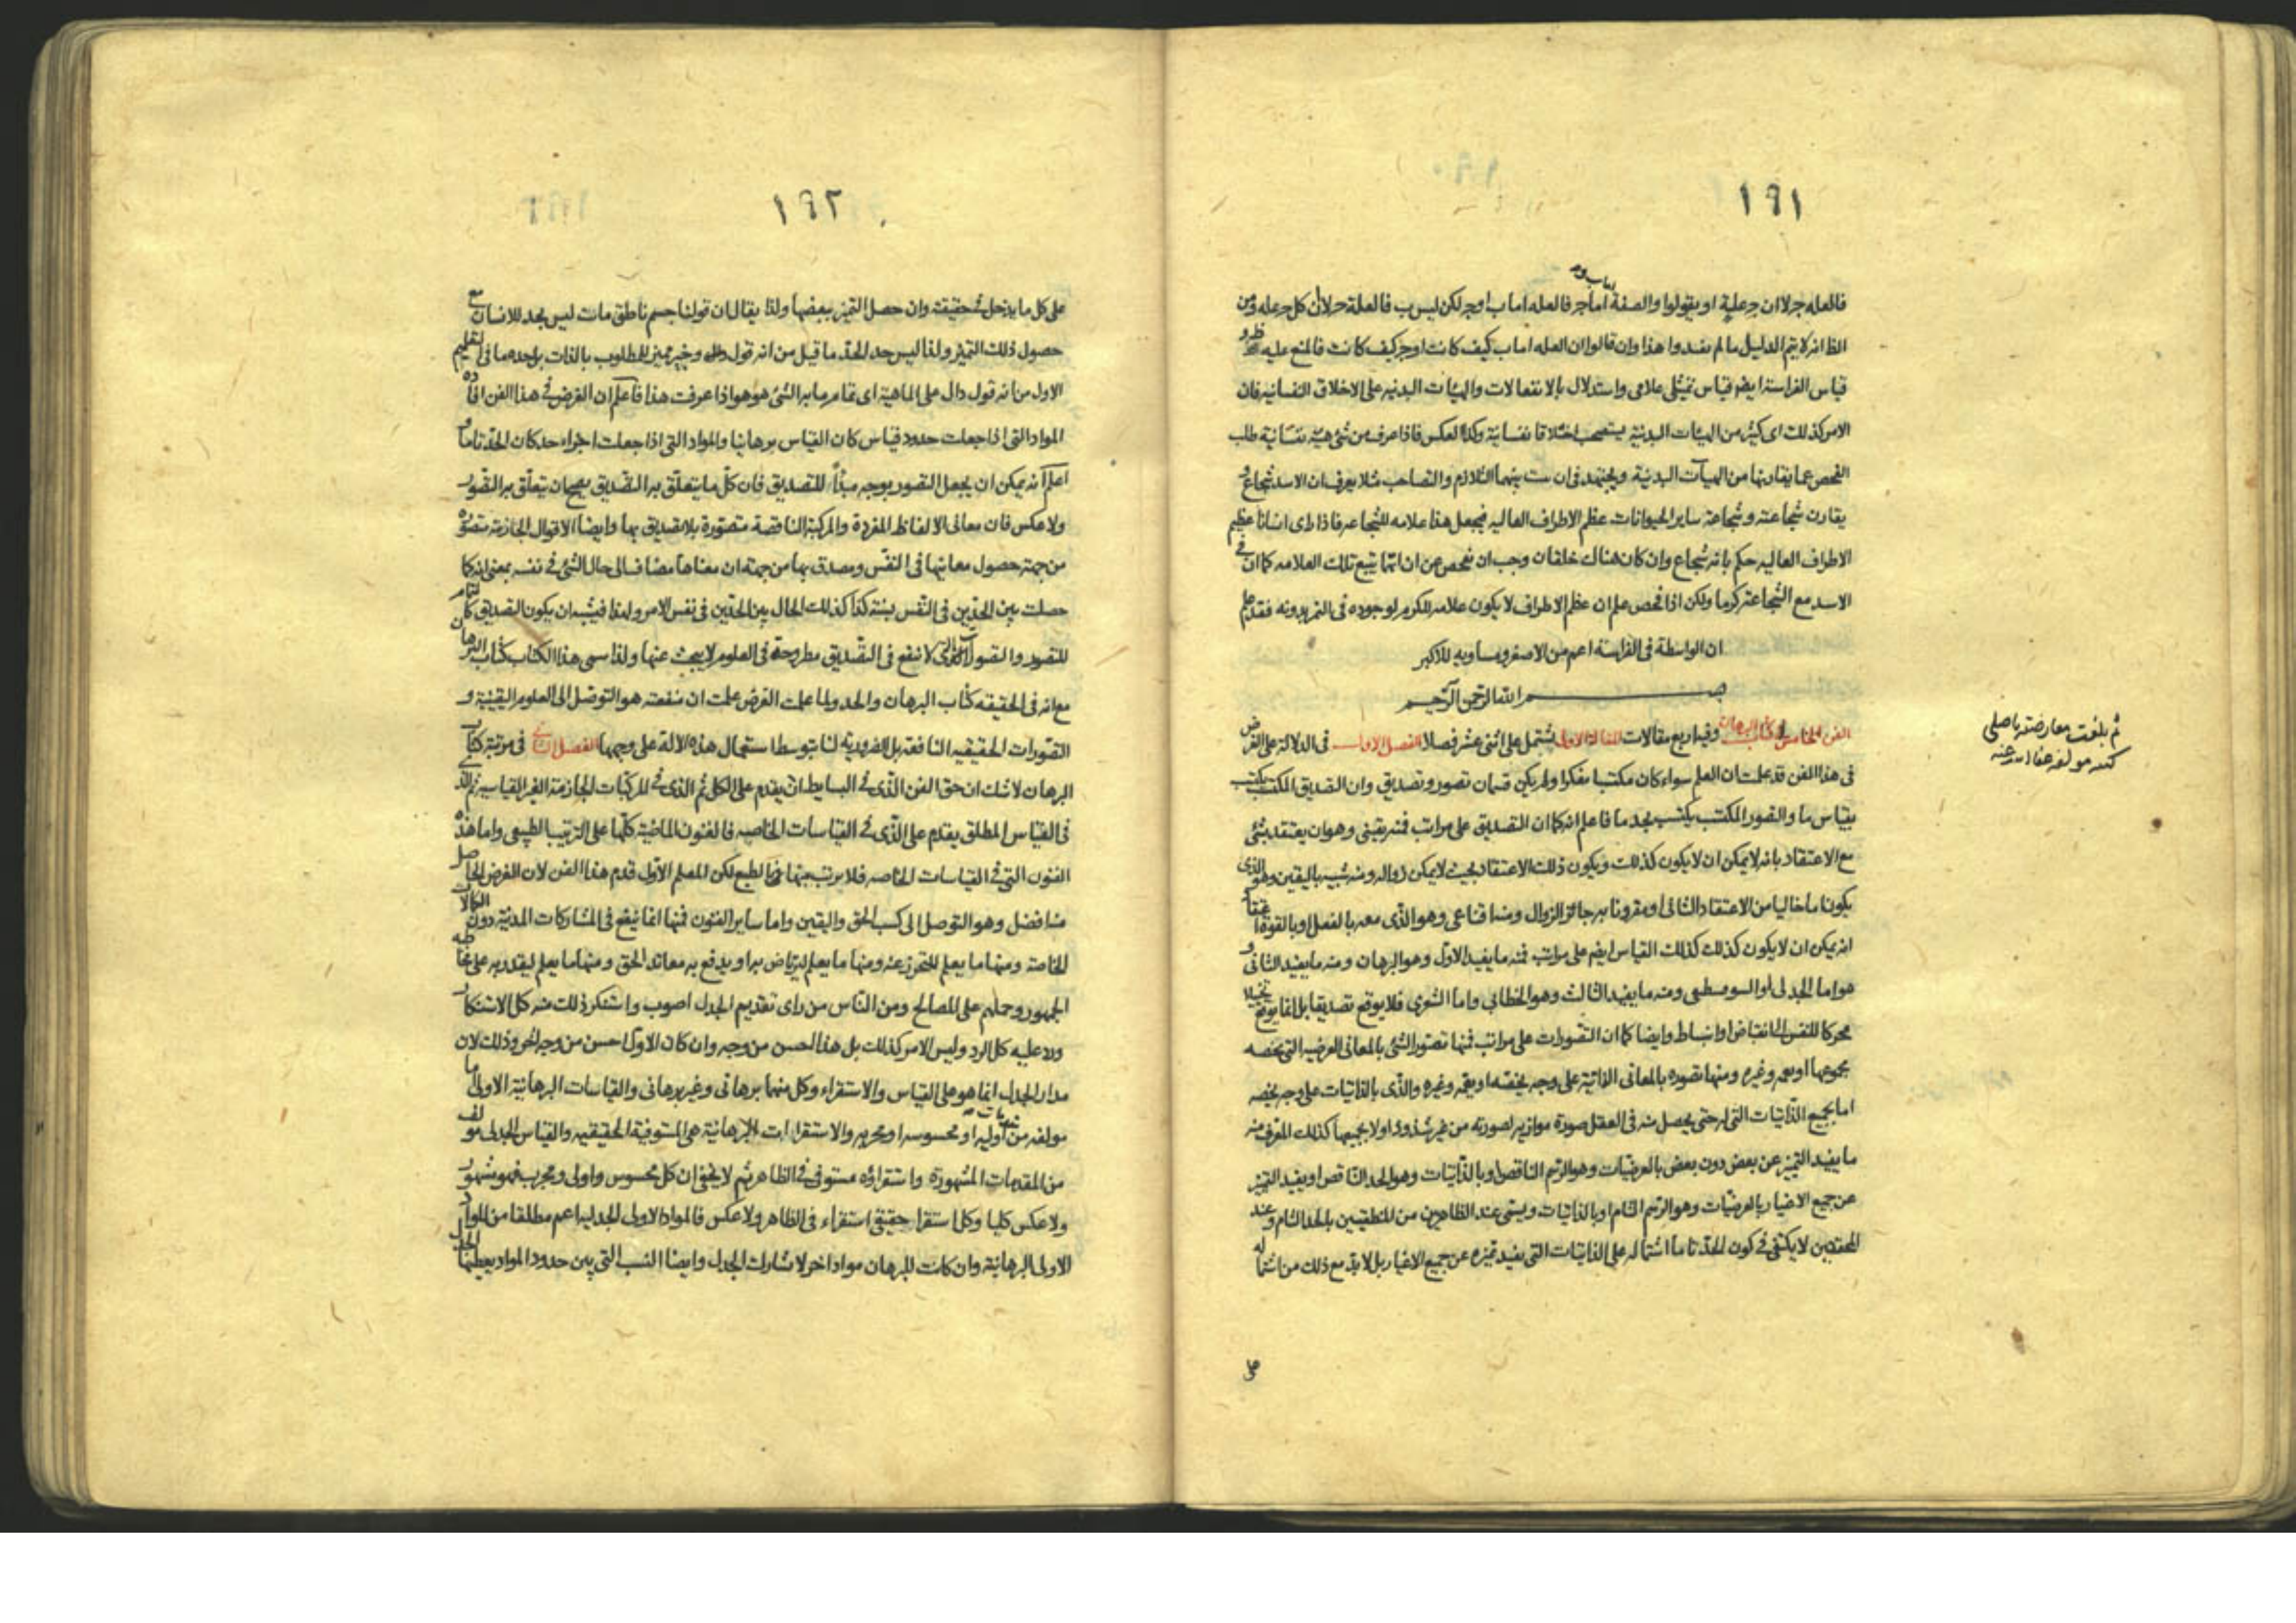 ١٩١
اما ب وحد
فالعله جرلا ان جرعلية او يقولوا والصفة اما جر فالعله اما ب او جر لكن ليس ب فالعلة جرلا ان كل جرعله ومن
الظانه لا يتم الدليل ما لم يفيدوا هذا وان قالوا ان العله اما ب كيف كانت او جر كيف كانت فالمنع عليه ظهر و
قياس الفراسة ايضا قياس تمثيلى علامى واستدلال بالانفعالات والهيئات البدنيه على الاخلاق النفسانيه فان
الامر كذلك اى كثير من الهيئات البدنية يستصحب اخلاقا نفسانية وكذا لعكس فاذا عرف من شئ هيئة نفسانية طلب
الفحص عما يقارنها من الهيآت البدنية ويجتهد فى ان بينهما التلازم والتصاحب مثلا يعرف ان الاسد شجاع و
يقارن شجاعته وشجاعة ساير الحيوانات عظم الاطراف العاليه فيجعل هذا علامه للشجاعه فاذا راى انسانا عظيم
الاطراف العاليه حكم بانه شجاع وان كان هناك خلقان وجب ان يفحص عن ان ايهما يتبع تلك العلامه كما ان فى
الاسد مع الشجاعة كرما ولكن اذا فحص علم ان عظم الاطراف لا يكون علامه للكرم لوجوده فى النمر بدونه فقد علم
ان الواسطة فى الفراسة اعم من الاصغر ومساويه للاكبر
بسم الله الرحمن الرحيم
الفن الخامس فى كتاب البرهان وفيه اربع مقالات المقالة الاولى يشتمل على اثنى عشر فصلا الفصل الاول فى الدلالة على الغرض
فى هذا الفن قد علمت ان العلم سواء كان مكتسبا بفكر او لم يكن قسمان تصور وتصديق وان التصديق المكتسب يكتسب
بقياس ما والتصور المكتسب يكتسب بحد ما فاعلم انه كما ان التصديق على مراتب فمنه يقينى وهو ان يعتقد بشئ
مع الاعتقاد بانه لا يمكن ان لا يكون كذلك ويكون ذلك الاعتقاد بحيث لا يمكن زواله ومنه شبيه باليقين وهو الذى
يكون اما خاليا من الاعتقاد الثانى او مقرونا به جائز الزوال ومنه اقناعى وهو الذى معه بالفعل او بالقوة اعتقاد
انه يمكن ان لا يكون كذلك كذلك القياس ايضا على مراتب فمنه ما يفيد الاول وهو البرهان ومنه ما يفيد الثانى و
هو اما الجدلى او السوفسطى ومنه ما يفيد الثالث وهو الخطابى واما الشعرى فلا يوقع تصديقا بل انما يوقع تخييلا
محركا للنفس الى انقباض او انبساط وايضا كما ان التصورات على مراتب فمنها تصور الشئ بالمعانى العرضيه التى تخصه
بمجموعها او يعمه وغيره ومنها تصوره بالمعانى الذاتية على وجه يخصه او يعمه وغيره والذى بالذاتيات على وجه يخصه
اما بجميع الذاتيات التى له حتى يحصل منه فى العقل صورة موازيه لصورته من غير شذوذ او لا بجميعها كذلك المعرف منه
ما يفيد التميز عن بعض دون بعض بالعرضيات وهو الرسم الناقص او بالذاتيات وهو الحد الناقص او يفيد التميز
عن جميع الاغيار بالعرضيات وهو الرسم التام او بالذاتيات ويسمى عند الظاهرين من المنطقيين بالحد التام وعند
المحققين لا يكتفى فى كون الحد تاما اشتماله على الذاتيات التى يفيد تميزه عن جميع الاغيار بل لا بد مع ذلك من اشتماله
على
ثم بلغت معارضته باصلى
كتبه مولفه عفا الله عنه
١٩٢
على كل ما يدخل فى حقيقته وان حصل التميز ببعضها ولذا يقال ان قولنا جسم ناطق مائت ليس بحد للانسان مع
حصول ذلك التميز ولذا ليس حد الحد ما قيل من انه قول دال وجيز مميز للمطلوب بالذات بل حده ما فى التعليم
الاول من انه قول دال على الماهية اى تمام ما به الشئ هو هو اذا عرفت هذا فاعلم ان الغرض فى هذا الفن افادة
المواد التى اذا جعلت حدود قياس كان القياس برهانيا والمواد التى اذا جعلت اجزاء حد كان الحد تاما و
اعلم انه يمكن ان يجعل التصور بوجه مبدأ للتصديق فان كل ما يتعلق به التصديق يصح ان يتعلق به التصور
ولا عكس فان معانى الالفاظ المفردة والمركبة الناقصة متصورة بلا تصديق بها وايضا الاقوال الجازمة متصوره
من جهة حصول معانيها فى النفس ومصدق بها من جهة ان معناها مضاف الى حال الشئ فى نفسه بمعنى انه كما
حصلت بين الحدين فى النفس نسبة كذا كذلك الحال بين الحدين فى نفس الامر ولهذا فيشبه ان يكون التصديق كالتمام
للتصور والتصورات التى لا تنفع فى التصديق مطروحة فى العلوم لا يبحث عنها ولذا سمى هذا الكتاب كتاب البرهان
مع انه فى الحقيقه كتاب البرهان والحد ولما علمت الغرض علمت ان منفعته هو التوصل الى العلوم اليقينية و
التصورات الحقيقيه النافعة بل الضرورية لنا بتوسط استعمال هذه الالة على وجهها الفصل الثانى فى مرتبة كتاب
البرهان لا شك ان حق الفن الذى فى البسايط ان يقدم على الكل ثم الذى فى المركبات الجازمة الغير القياسيه ثم الذى
فى القياس المطلق يقدم على الذى فى القياسات الخاصه فالفنون الماضية كلها على الترتيب الطبيعى واما هذه
الفنون التى فى القياسات الخاصه فلا مرتب بينها بالطبع لكن المعلم الاول قدم هذا الفن لان الغرض الحاصل
منه افضل وهو التوصل الى كسب الحق واليقين واما ساير الفنون فمنها انما ينفع فى المشاركات المدنية دون الكمالات
الخاصة ومنها ما يعلم للتحرز عنه ومنها ما يعلم ليرتاض به او يدفع به معاند الحق ومنها ما يعلم ليقتدر به على مخاطبه
الجمهور وحملهم على المصالح ومن الناس من راى تقديم الجدل اصوب واستنكر ذلك منه كل الاستنكار
ورد عليه كل الرد وليس الامر كذلك بل هذا الحسن من وجه وان كان الاول احسن من وجه اخر وذلك لان
مدار الجدل انما هو على القياس والاستقراء وكل منهما برهانى وغير برهانى والقياسات البرهانية الاولى اما
مولفه من اوليه او محسوسه او مجربه والاستقراات البرهانية هى المستوفية الحقيقيه والقياس الجدلى مولف
من المقدمات المشهورة واستقراؤه مستوفى فى الظاهر ثم لا يخفى ان كل محسوس واولى ومجرب فهو مشهور
ولا عكس كليا وكل استقرا حقيقى استقراء فى الظاهر ولا عكس فالمواد الاولى الجدليه اعم مطلقا من المواد
الاولى البرهانية وان كانت للبرهان مواد اخر لا تشارك الجدل وايضا النسب التى بين حدود المواد يعطيها الجدل